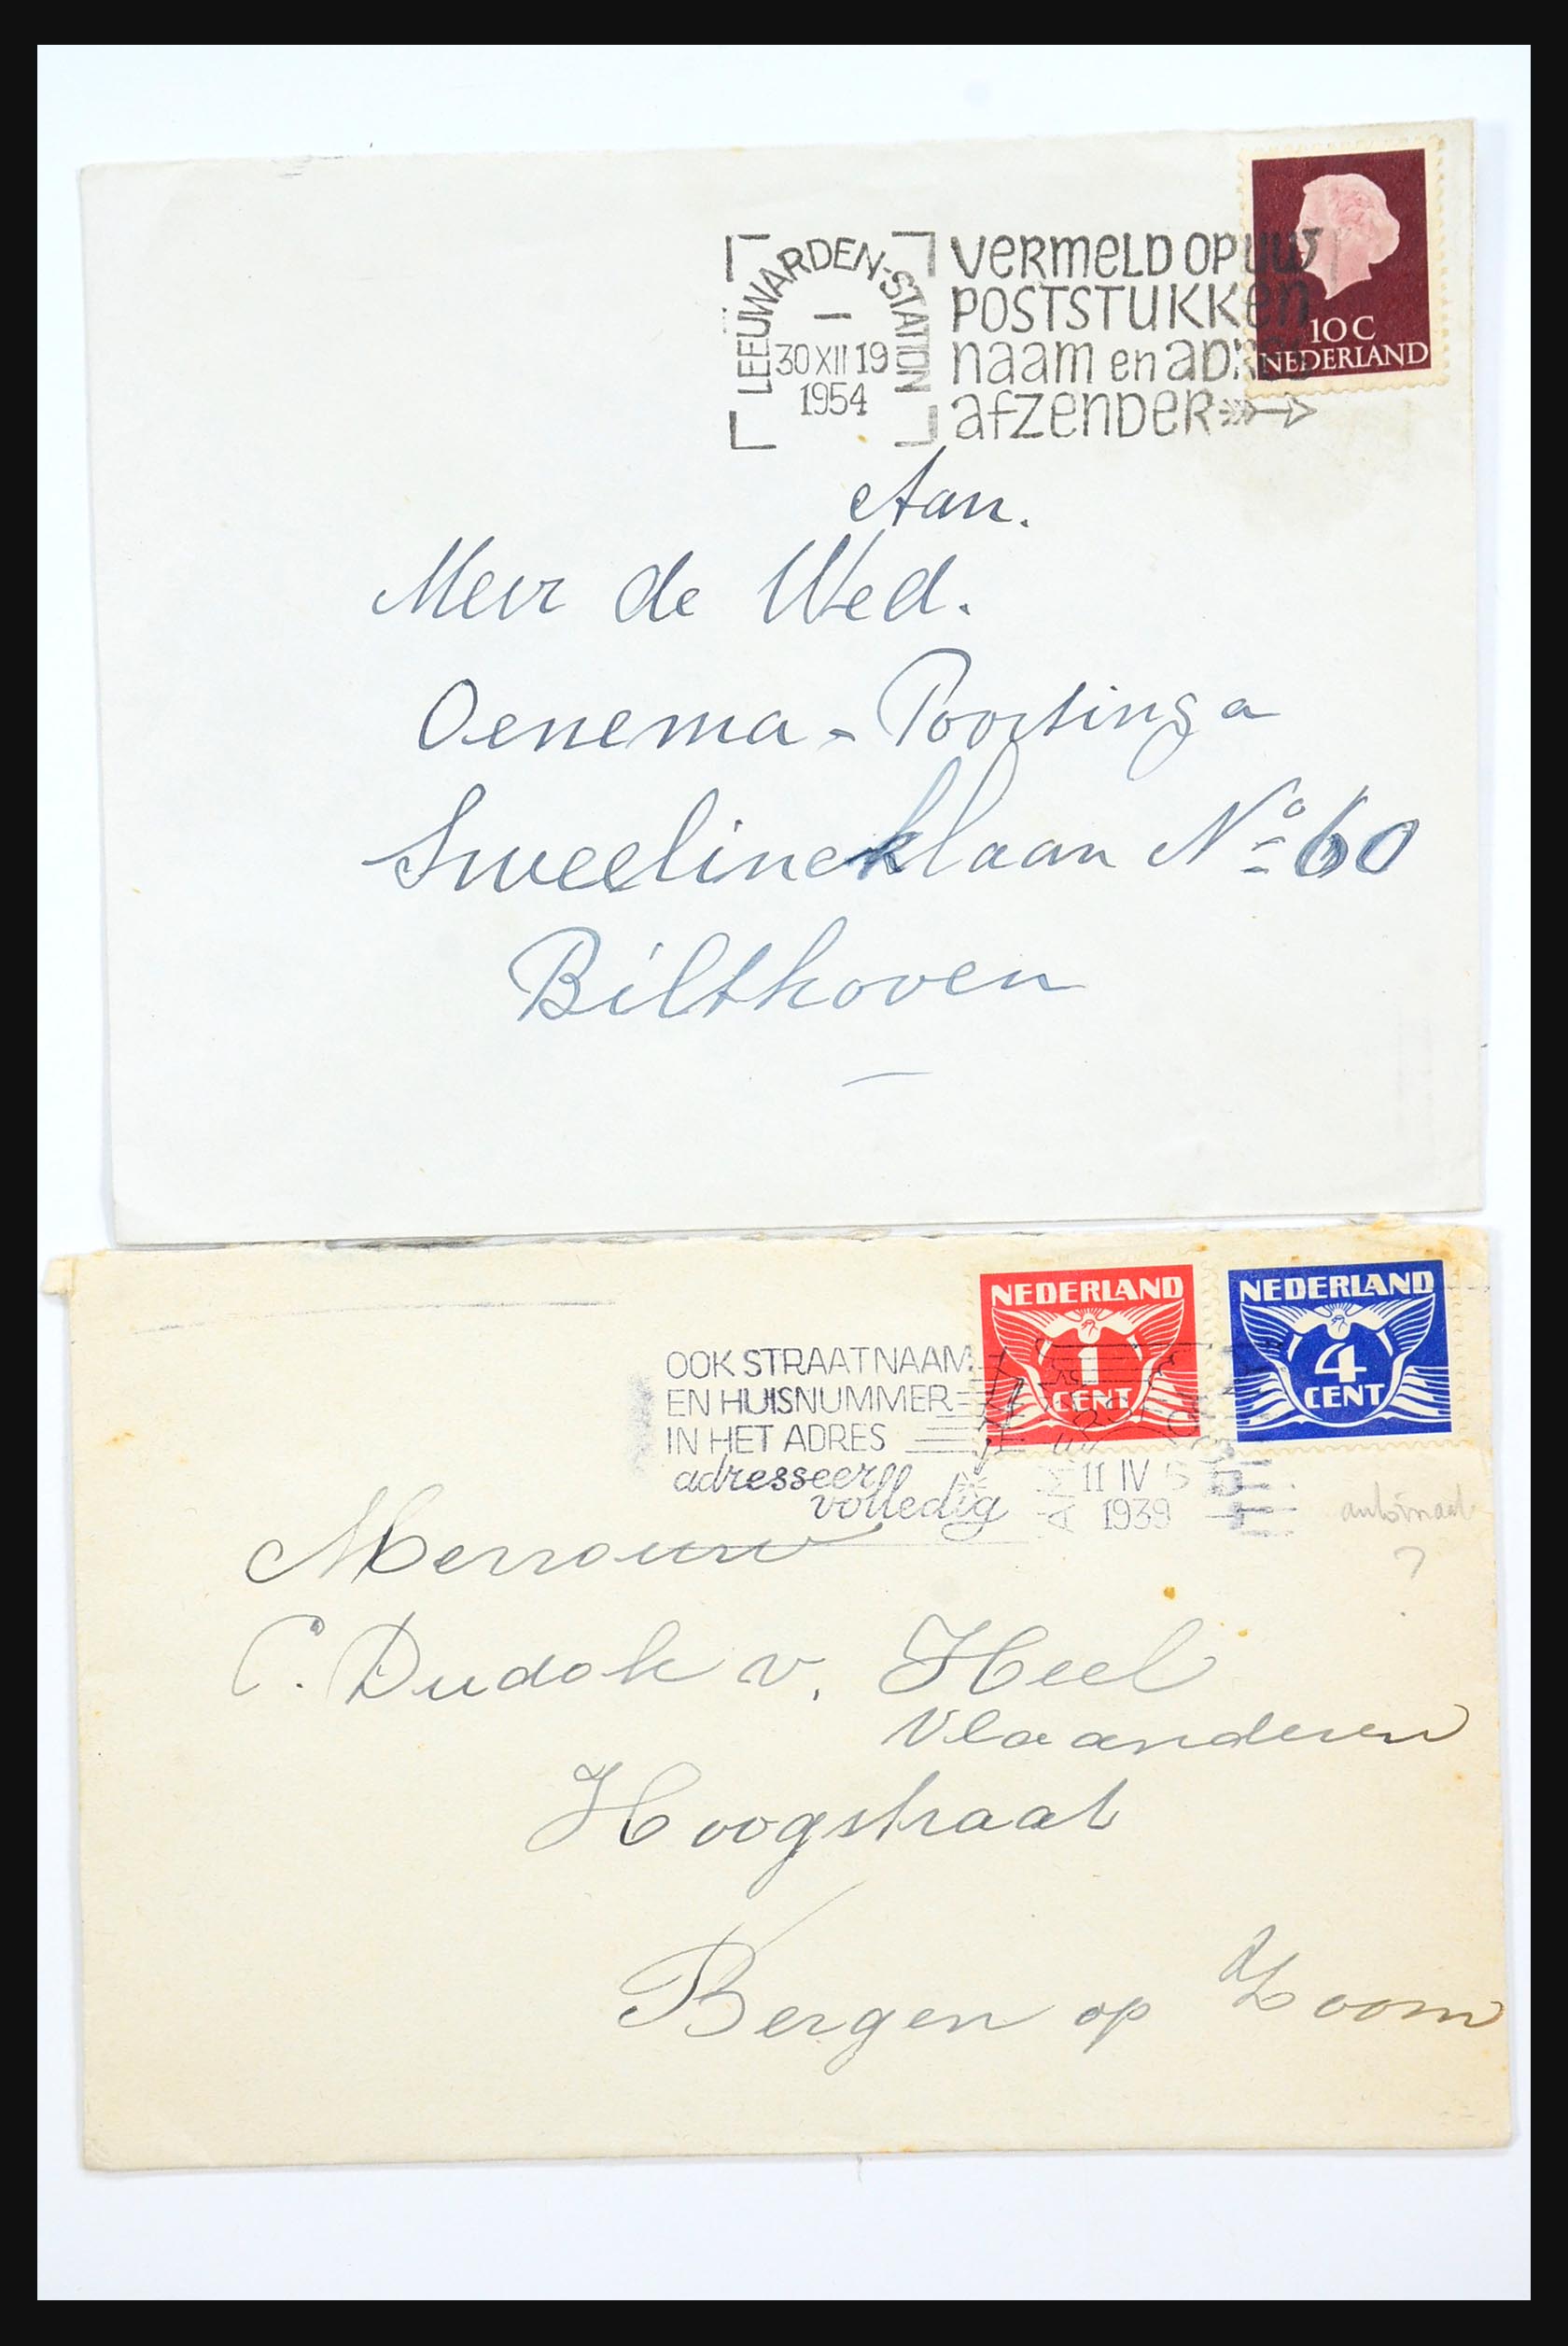 LEEUWARDEN-STATION
30 XII 19
1954
VERMELD OP UW
POSTSTUKKEN
naam en ADRES
AFZENDER
10 C
NEDERLAND
Aan.
Mevr de Wed.
Oenema - Poortinga
Sweelincklaan No 60
Bilthoven
OOK STRAATNAAM
EN HUISNUMMER
IN HET ADRES
adresseer
volledig
NEDERLAND
1
CENT
NEDERLAND
4
CENT
11 IV
1939
automaat
?
Mevrouw
C. Dudok v. Heel
Vlaanderen
Hoogstraat
Bergen op Zoom